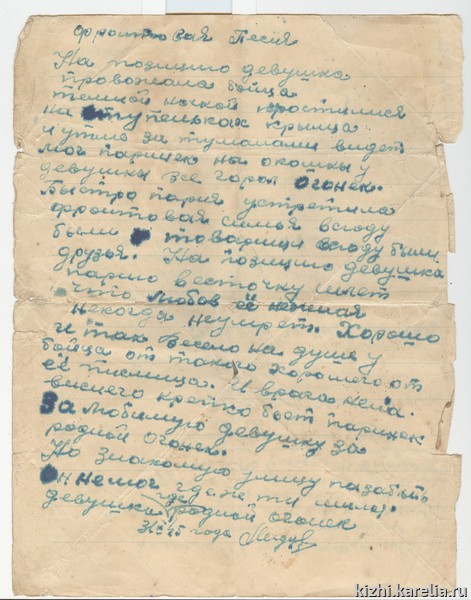 Фронтовая Песня
На позицию девушка
провожала бойца
темной ночкой простилися
на ступеньках крыльца.
и утпо за туманами видет
мог паринек на окошки у
девушки все горол Огонек.
Быстро парня устретила
фронтовая семья всюду
были товарищи всюду были
друзья. На позицию девушка
парню весточку шлет
что любов её
некогда неумрет. Хорошо
и так весело на душе у
бойца от такого хорошего от
её писмица. И врага нена-
висного крепко бьет паринек
За любимую девушку за
родной огонек.
Но знакомую улицу пазабыть
он немог где же ты мила;
девушка где родной огонек
45 года
kizhi.karelia.ru